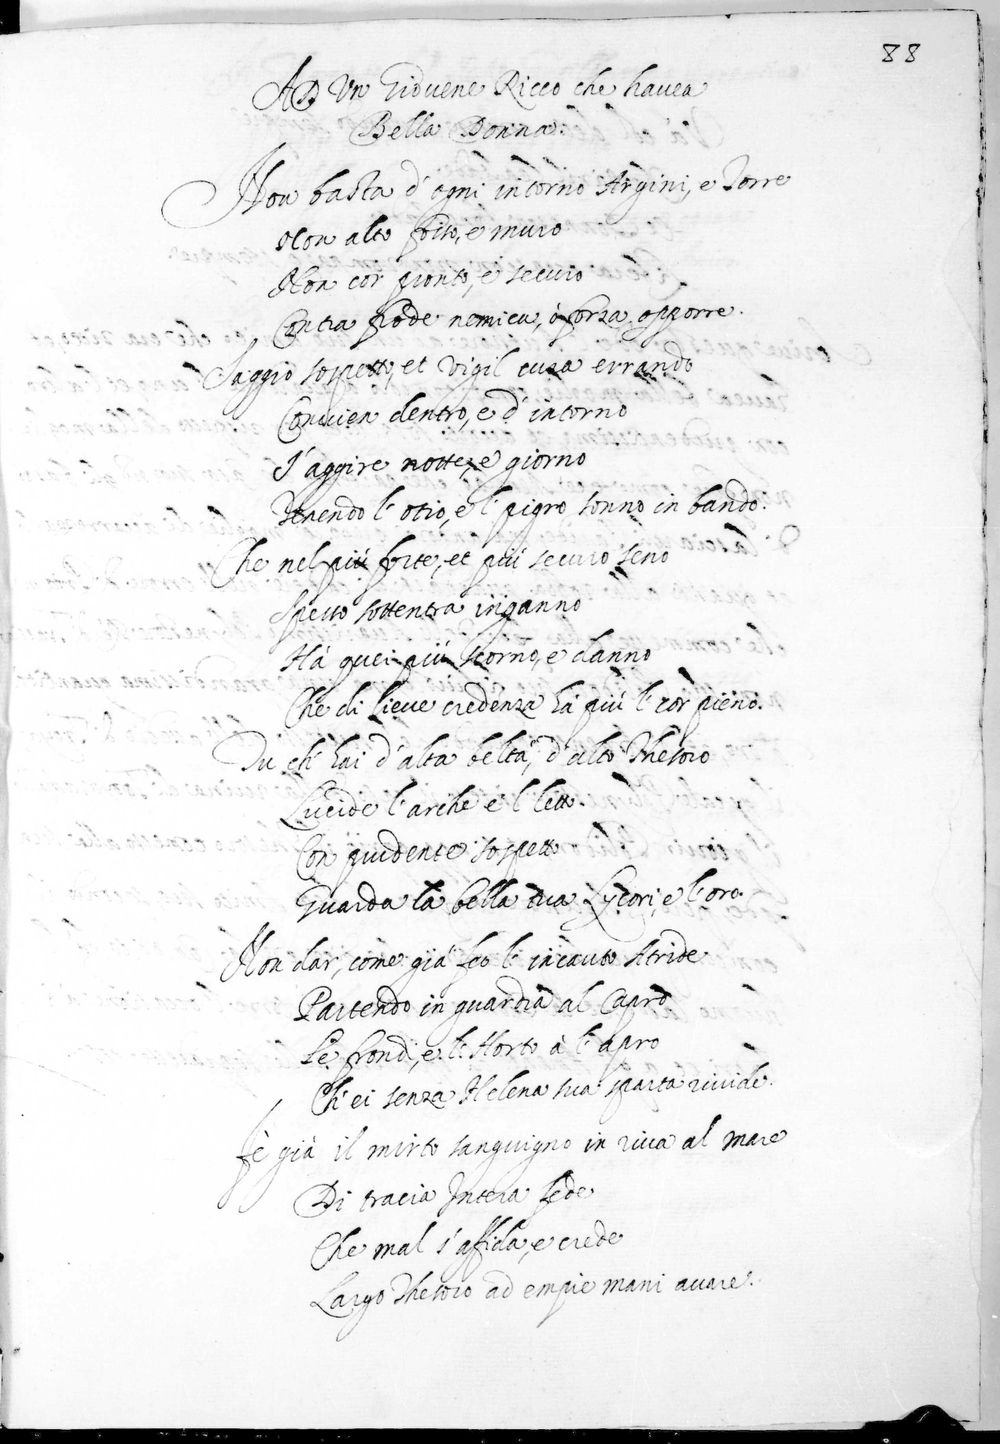 88
AD Un Giovene Ricco che havea
Bella Donna.
Non basta d'ogni intorno Argini, e Torre
Non alto fosso, e muro
Non cor pronto, e securo
Contra frode nemica, ò forza opporre.
Saggio sospetto, et vigil cura errando
Convien dentro, e d'intorno
S'aggire notte, e giorno
Tenendo l'otio, e l'pigro sonno in bando.
Che nel più forte, et più securo seno
Spesso sottentra inganno
Hà quei più scorno, e danno
Che di lieve credenza hà più l'cor pieno.
Tu ch'hai d'alta beltà, d'alto Thesoro
Lucide l'arche e l'letto
Con prudente sospetto
Guarda la bella tua Lycori, e l'oro.
Non dar, come già feo l'incauto Atride
Partendo in guardia al Capro
Le frondi, e l'Horto à l'apro
Ch'ei senza Helena sua sparta rivide.
Fè già il mirto sanguigno in riva al mare
Di tracia Intera fede
Che mal s'affida, e crede
Largo Thesoro ad empie mani avare.